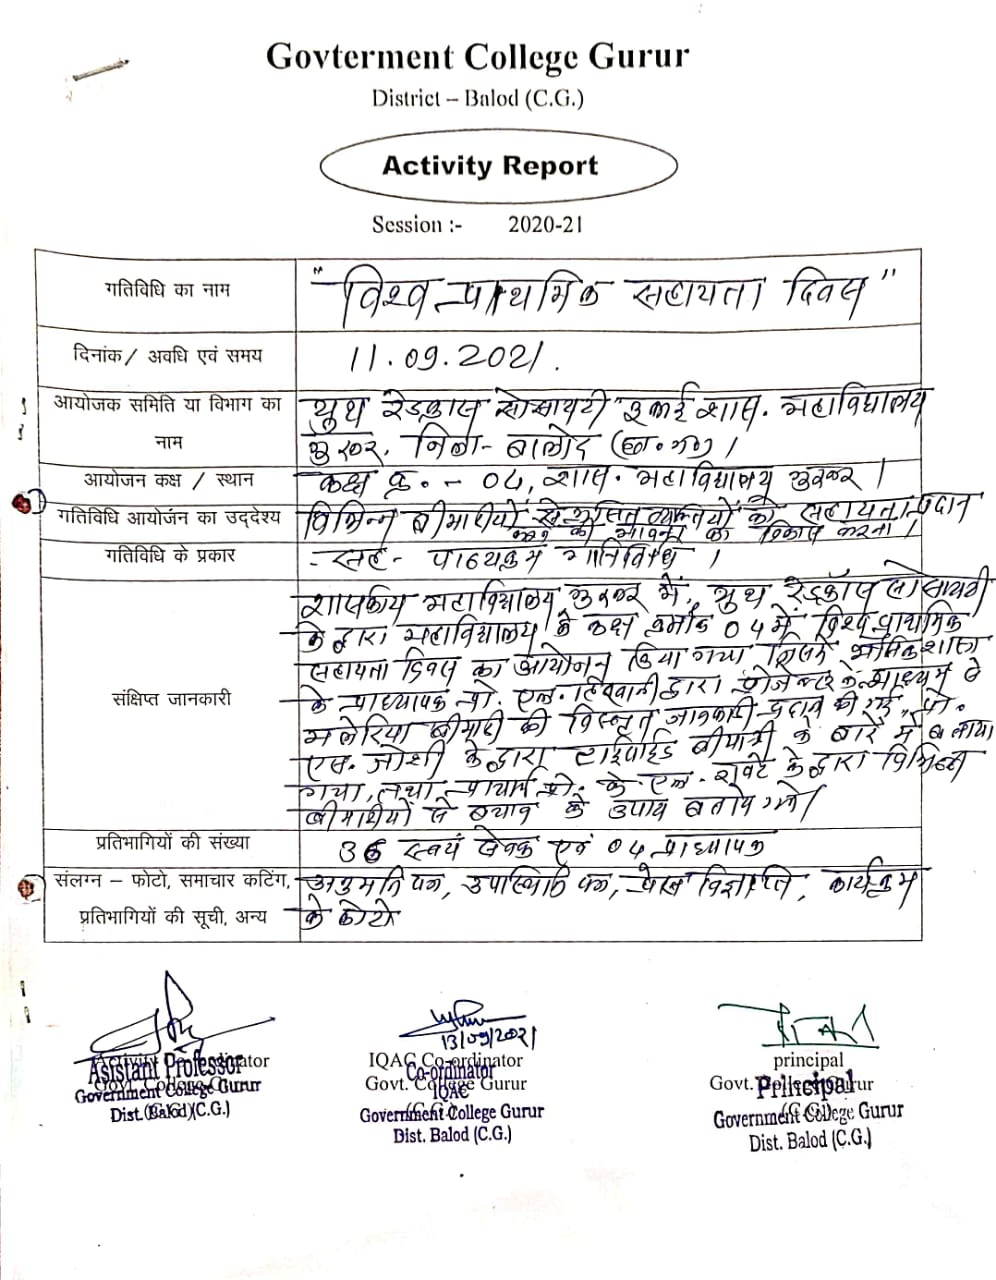 Govterment College Gurur
District – Balod (C.G.)
Activity Report
Session :- 2020-21
गतिविधि का नाम
"विश्व प्राथमिक सहायता दिवस"
दिनांक/ अवधि एवं समय
11.09.2021.
आयोजक समिति या विभाग का
नाम
यूथ रेडक्रास सोसायटी इकाई शास. महाविद्यालय
गुरूर, जिला- बालोद (छ.ग.)।
आयोजन कक्ष / स्थान
कक्ष क्र. - 04, शास. महाविद्यालय गुरूर।
गतिविधि आयोजन का उद्देश्य
विभिन्न बीमारीयों से ग्रसित व्यक्तियों को सहायता प्रदान
करने की भावना का विकास करना।
गतिविधि के प्रकार
- सह - पाठ्यक्रम गतिविधि।
संक्षिप्त जानकारी
शासकीय महाविद्यालय गुरूर में, यूथ रेडक्रॉस सोसायटी
के द्वारा महाविद्यालय के कक्ष क्रमांक 04 में विश्व प्राथमिक
सहायता दिवस का आयोजन किया गया जिसमें भौतिकशास्त्र
के प्राध्यापक प्रो. एल. द्वारा प्रोजेक्टर के माध्यम से
मलेरिया बीमारी की विस्तृत जानकारी प्रदान की गई, प्रो.
एस. जोशी के द्वारा टाईफाईड बीमारी के बारे में बताया
गया, तथा प्राचार्य प्रो. के. एल. रावटे के द्वारा विभिन्न
बीमारीयों से बचाव के उपाय बताये गये।
प्रतिभागियों की संख्या
36 स्वयं सेवक एवं 04 प्राध्यापक
संलग्न – फोटो, समाचार कटिंग,
प्रतिभागियों की सूची, अन्य
अनुमति पत्र, उपस्थिति पत्रक, प्रेस विज्ञप्ति, कार्यक्रम
के फोटो
13/09/2021
Asistant Professor
Government College Gurur
Dist. Balod (C.G.)
IQAC Co-ordinator
Govt. College Gurur
Co-ordinator
IQAC
Government College Gurur
Dist. Balod (C.G.)
principal
Govt. College Gurur
Principal
Government College Gurur
Dist. Balod (C.G.)